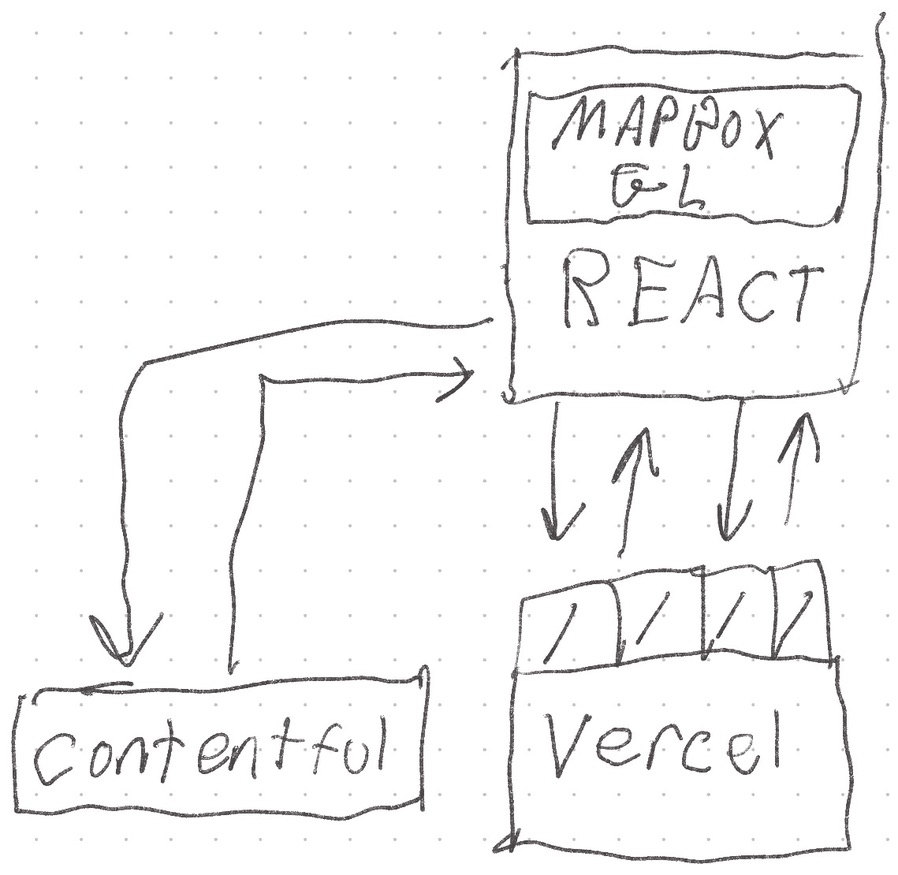 MAPBOX
GL
REACT
contentful
Vercel
/ / / /